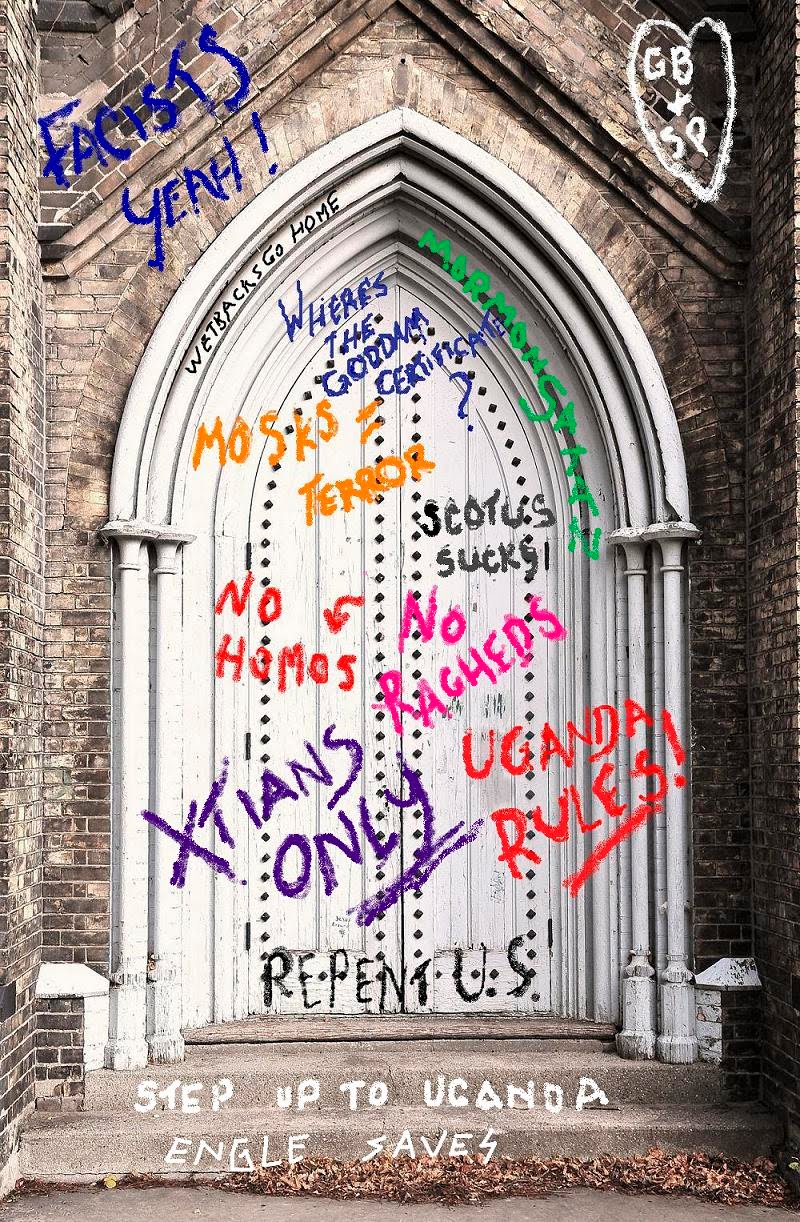 FACISTS
YEAH!
GB
+
SP
WETBACKS GO HOME
MORMON SATAN
WHERE'S
THE
GODDAM
CERTIFICATE
?
MOSKS =
TERROR
SCOTUS
SUCKS!
NO
HOMOS
NO
RAGHEDS
XTIANS
ONLY
UGANDA
RULES!
REPENT U.S.
STEP UP TO UGANDA
ENGLE SAVES